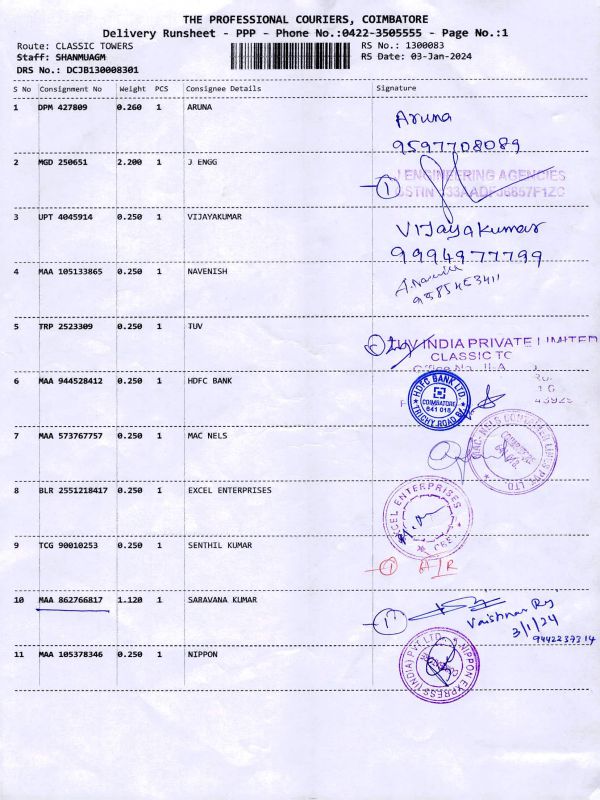 THE PROFESSIONAL COURIERS, COIMBATORE
Delivery Runsheet - PPP - Phone No.:0422-3505555 - Page No.:1
Route: CLASSIC TOWERS
RS No.: 1300083
Staff: SHANMUAGM
RS Date: 03-Jan-2024
DRS No.: DCJB130008301
S No Consignment No Weight PCS Consignee Details Signature
1 DPM 427809 0.260 1 ARUNA
Aruna
9597708089
2 MGD 250651 2.200 1 J ENGG
ENGINEERING AGENCIES
1
3 UPT 4045914 0.250 1 VIJAYAKUMAR
Vijayakumar
9994977799
4 MAA 105133865 0.250 1 NAVENISH
5 TRP 2523309 0.250 1 TUV
TUV INDIA PRIVATE LIMITED
CLASSIC TO
6 MAA 944528412 0.250 1 HDFC BANK
HDFC BANK LTD.
COIMBATORE
641 018
TRICHY ROAD BR.
7 MAA 573767757 0.250 1 MAC NELS
8 BLR 2551218417 0.250 1 EXCEL ENTERPRISES
EXCEL ENTERPRISES
9 TCG 90010253 0.250 1 SENTHIL KUMAR
1 A/R
10 MAA 862766817 1.120 1 SARAVANA KUMAR
1
3/1/24
11 MAA 105378346 0.250 1 NIPPON
NIPPON EXPRESS (INDIA) PVT LTD